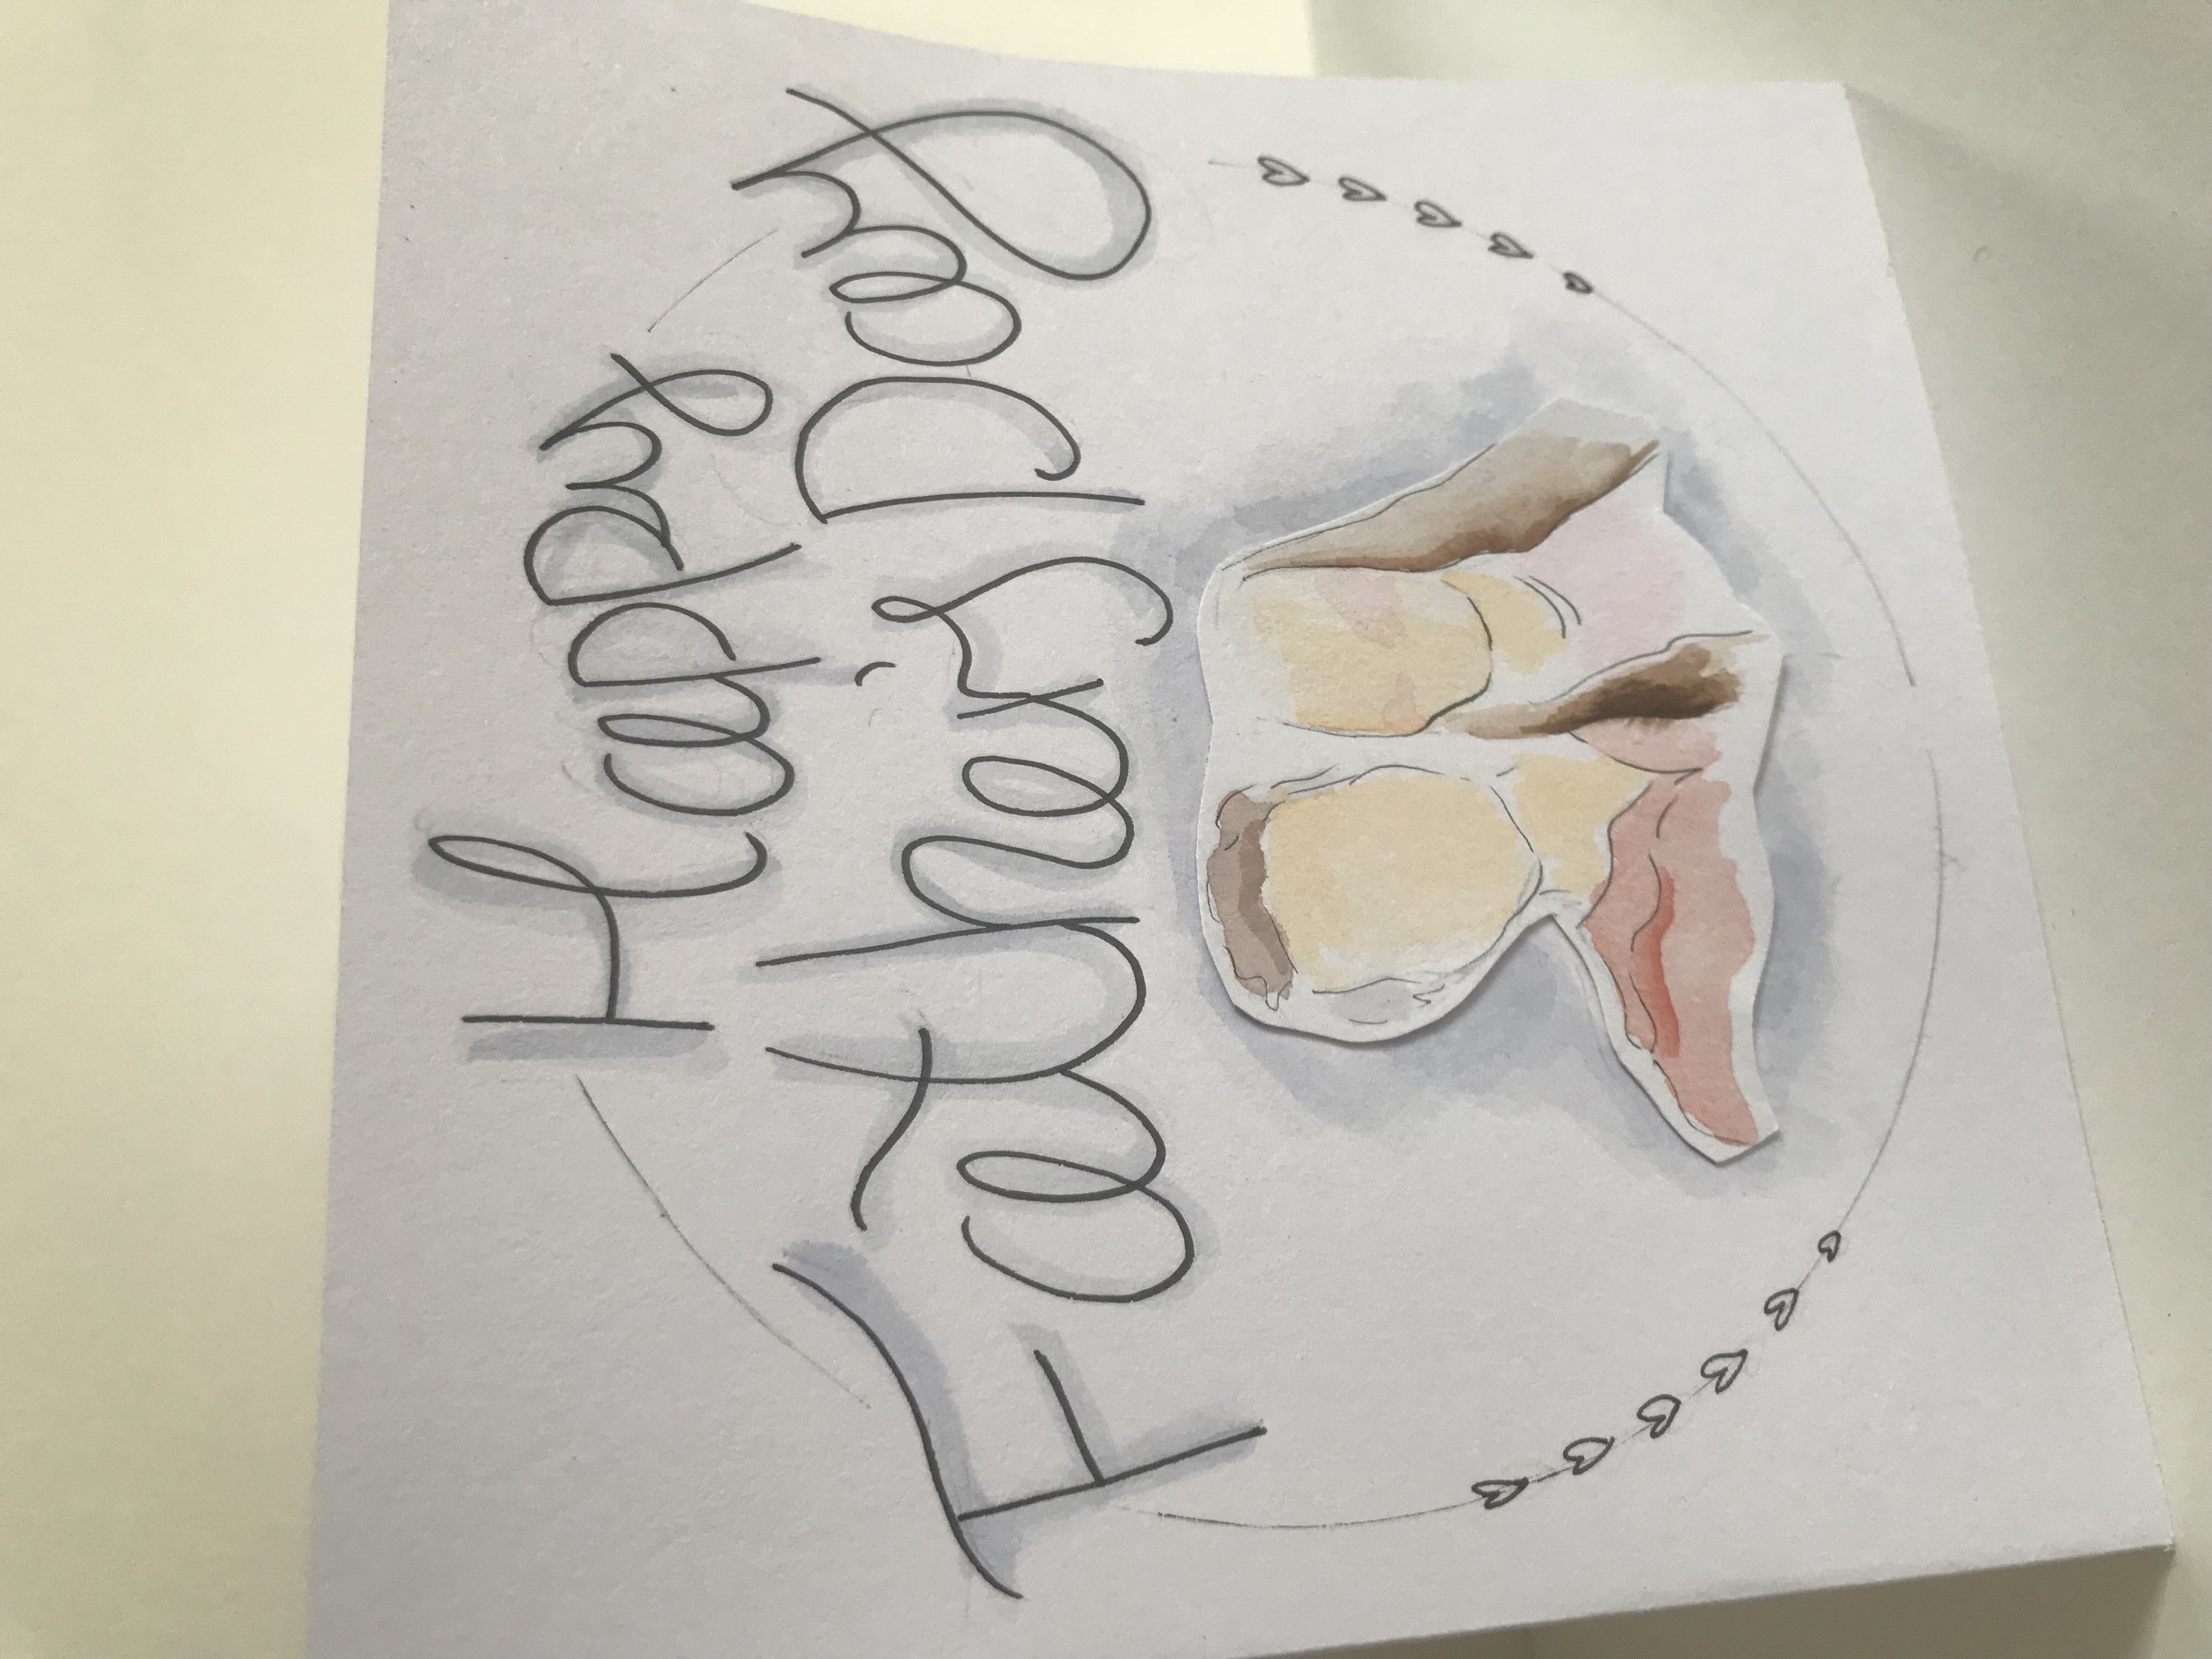 Happy
Father's Day